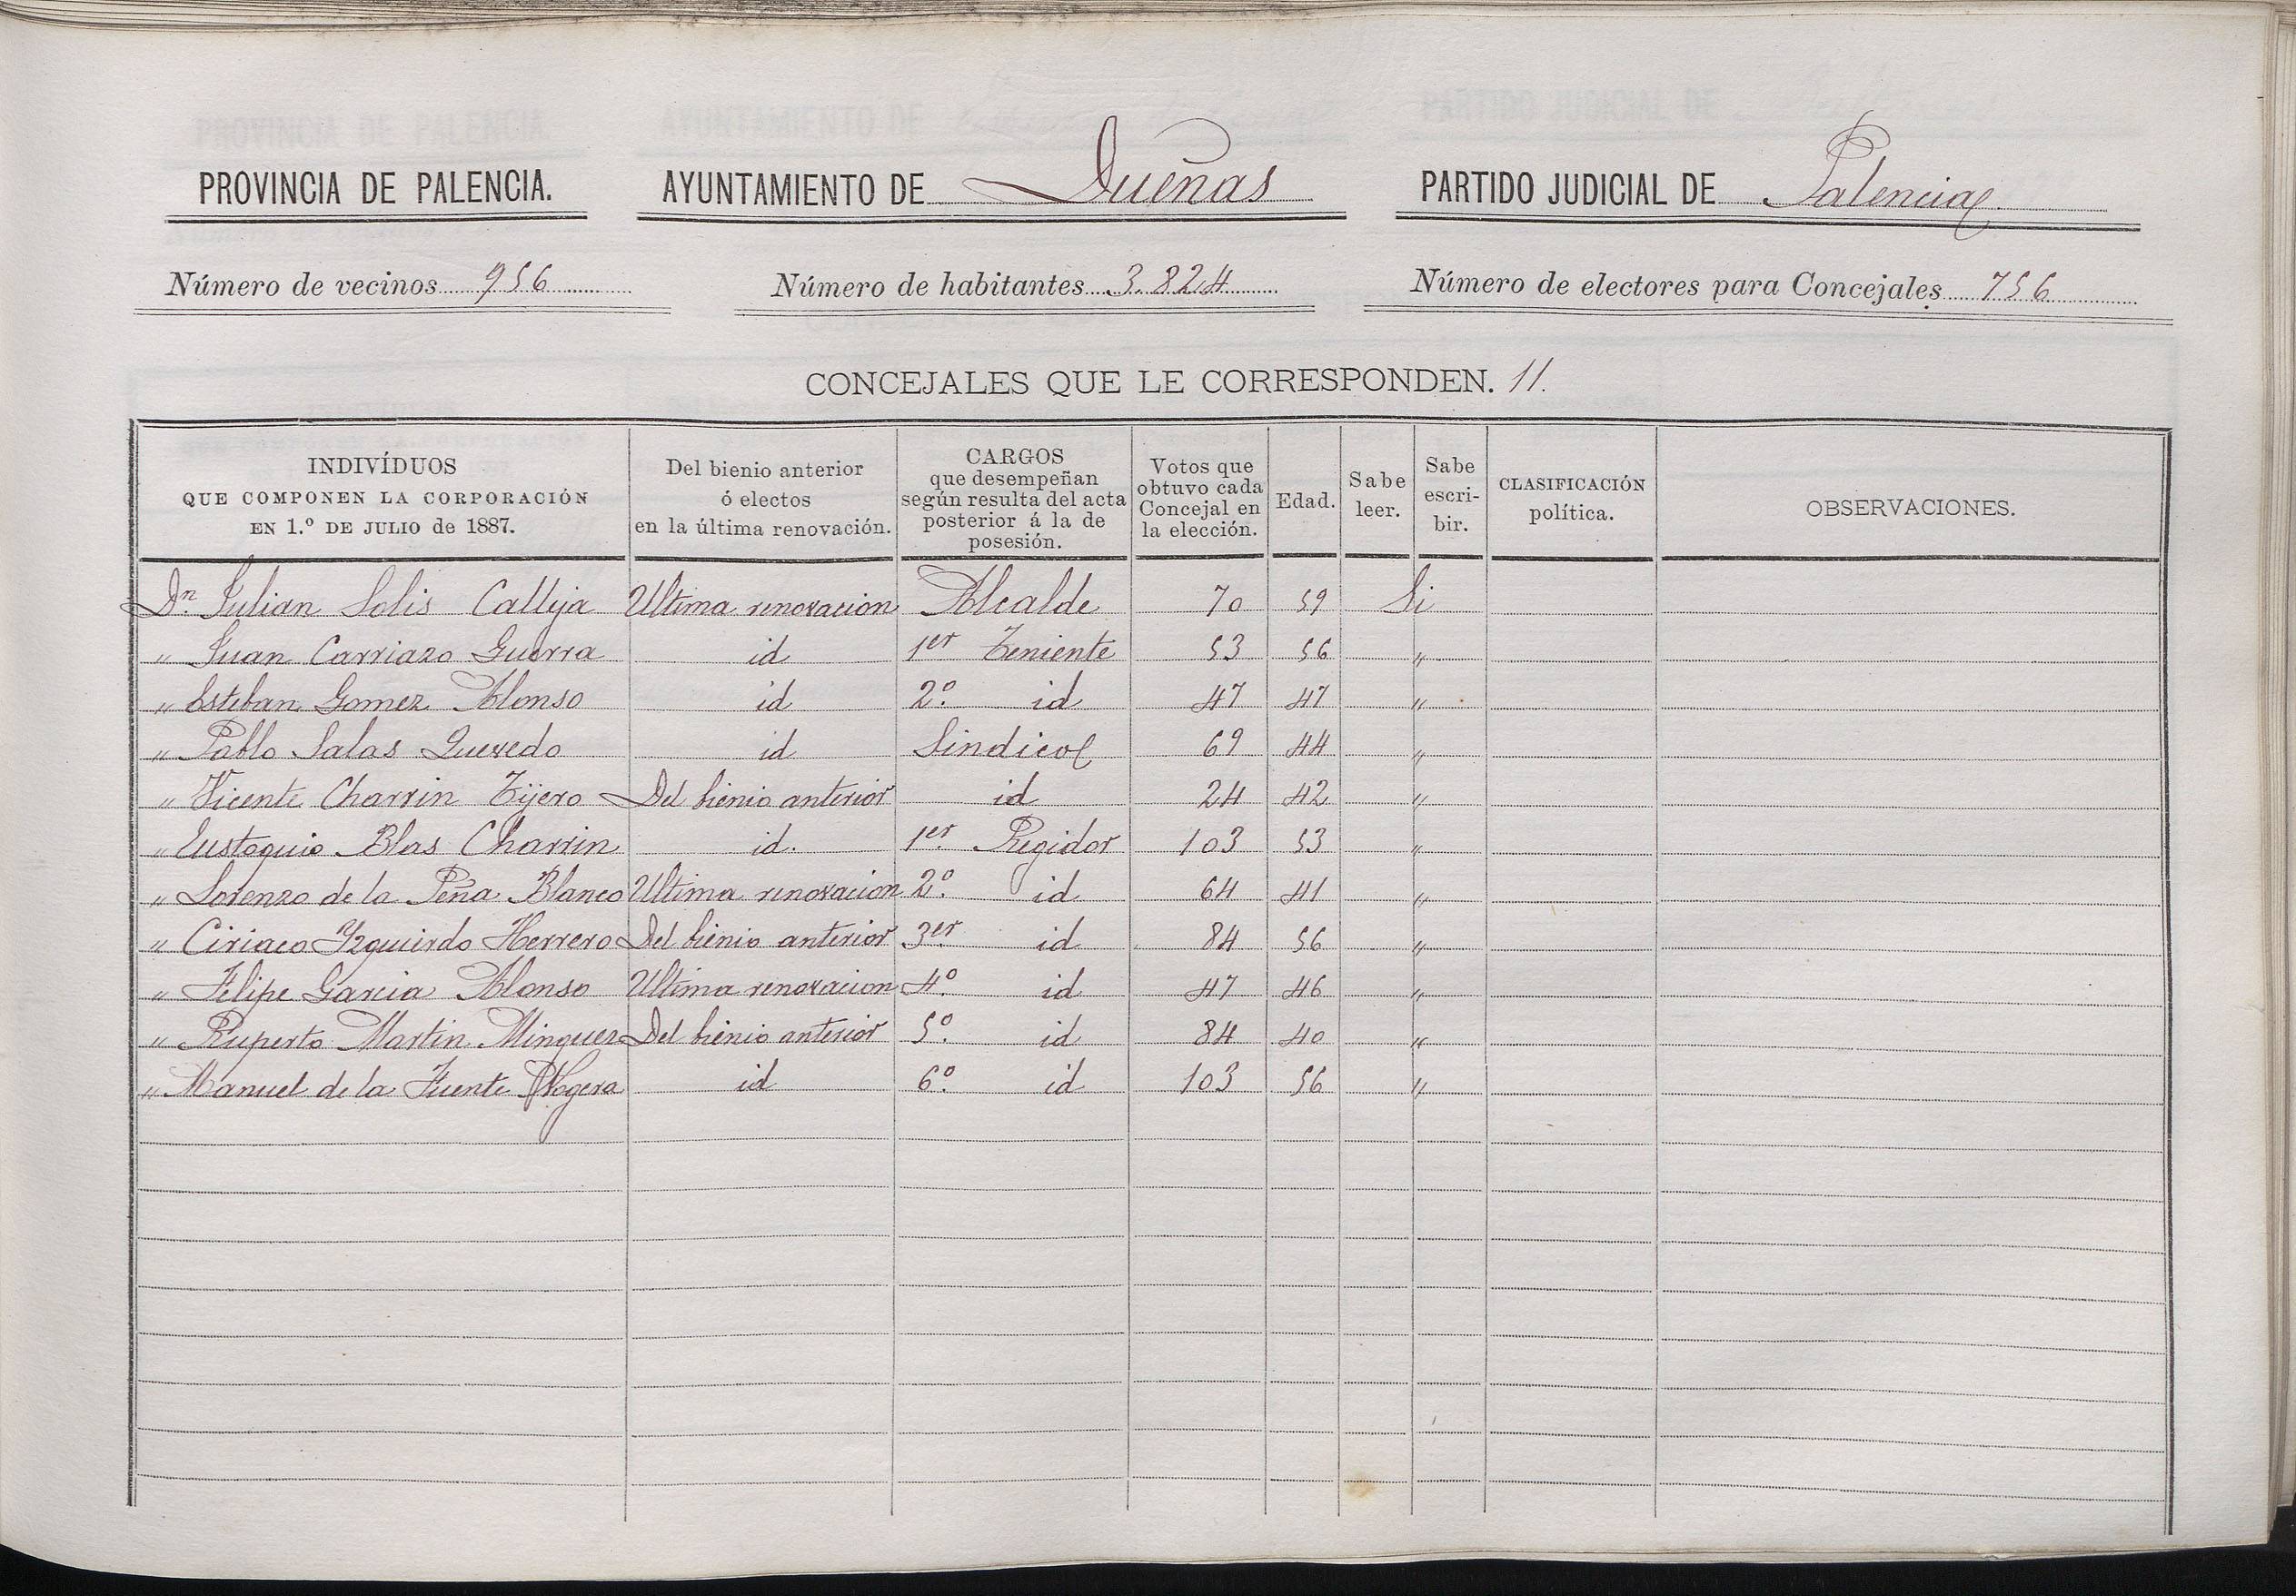 PROVINCIA DE PALENCIA. AYUNTAMIENTO DE Dueñas PARTIDO JUDICIAL DE Palencia
Número de vecinos 956 Número de habitantes 3.824 Número de electores para Concejales 756
CONCEJALES QUE LE CORRESPONDEN. 11.
INDIVÍDUOS QUE COMPONEN LA CORPORACIÓN EN 1.º DE JULIO de 1887. Del bienio anterior ó electos en la última renovación. CARGOS que desempeñan según resulta del acta posterior á la de posesión. Votos que obtuvo cada Concejal en la elección. Edad. Sabe leer. Sabe escri-bir. CLASIFICACIÓN política. OBSERVACIONES.
Dn. Julian Solis Calleja Ultima renovacion Alcalde 70 59 Si
" Juan Carriazo Guerra id 1er Teniente 53 56 "
" Esteban Gomez Alonso id 2º. id 47 47 "
" Pablo Salas Quevedo id Sindico 69 44 "
" Vicente Charrin Tijero Del bienio anterior id 24 42 "
" Eustaquio Blas Charrin id. 1er. Regidor 103 53 "
" Lorenzo de la Peña Blanco Ultima renovacion 2º. id 64 41 "
" Ciriaco Yzquierdo Herrero Del bienio anterior 3er. id 84 56 "
" Felipe Garcia Alonso Ultima renovacion 4º. id 47 46 "
" Ruperto Martin Minguez Del bienio anterior 5º. id 84 40 "
" Manuel de la Fuente id 6º. id 103 56 "